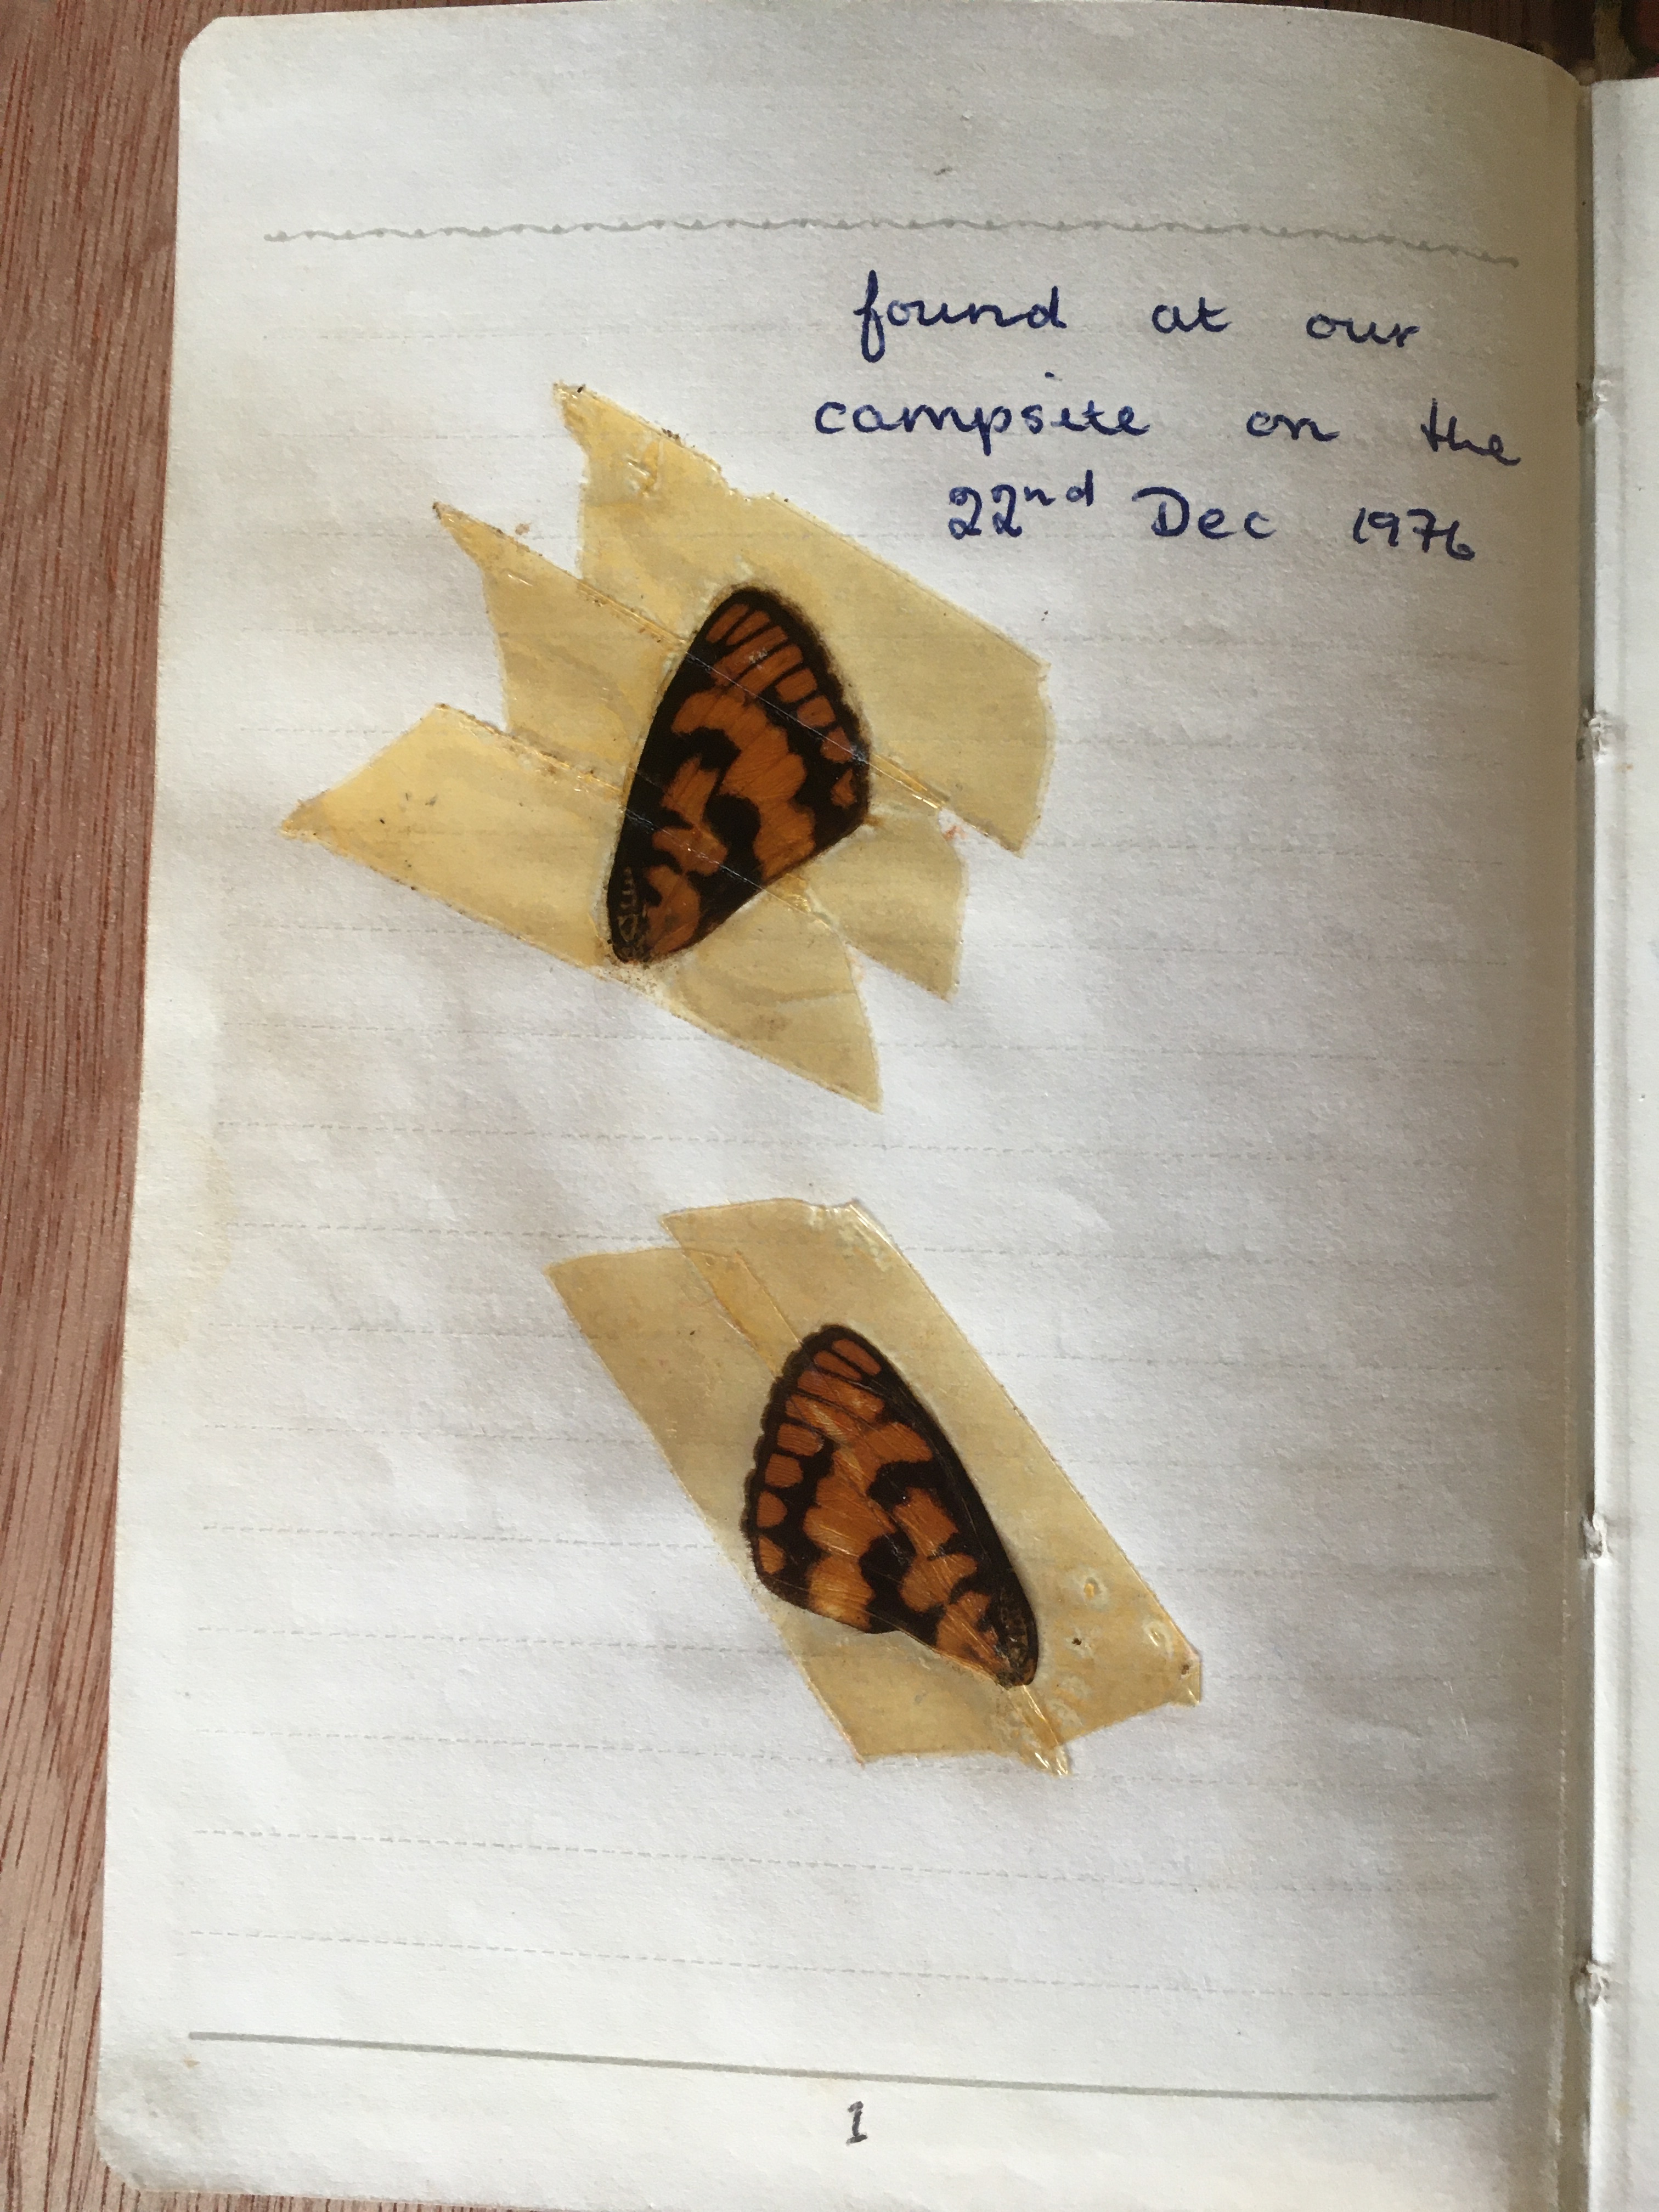 found at our
campsite on the
22nd Dec 1976
1